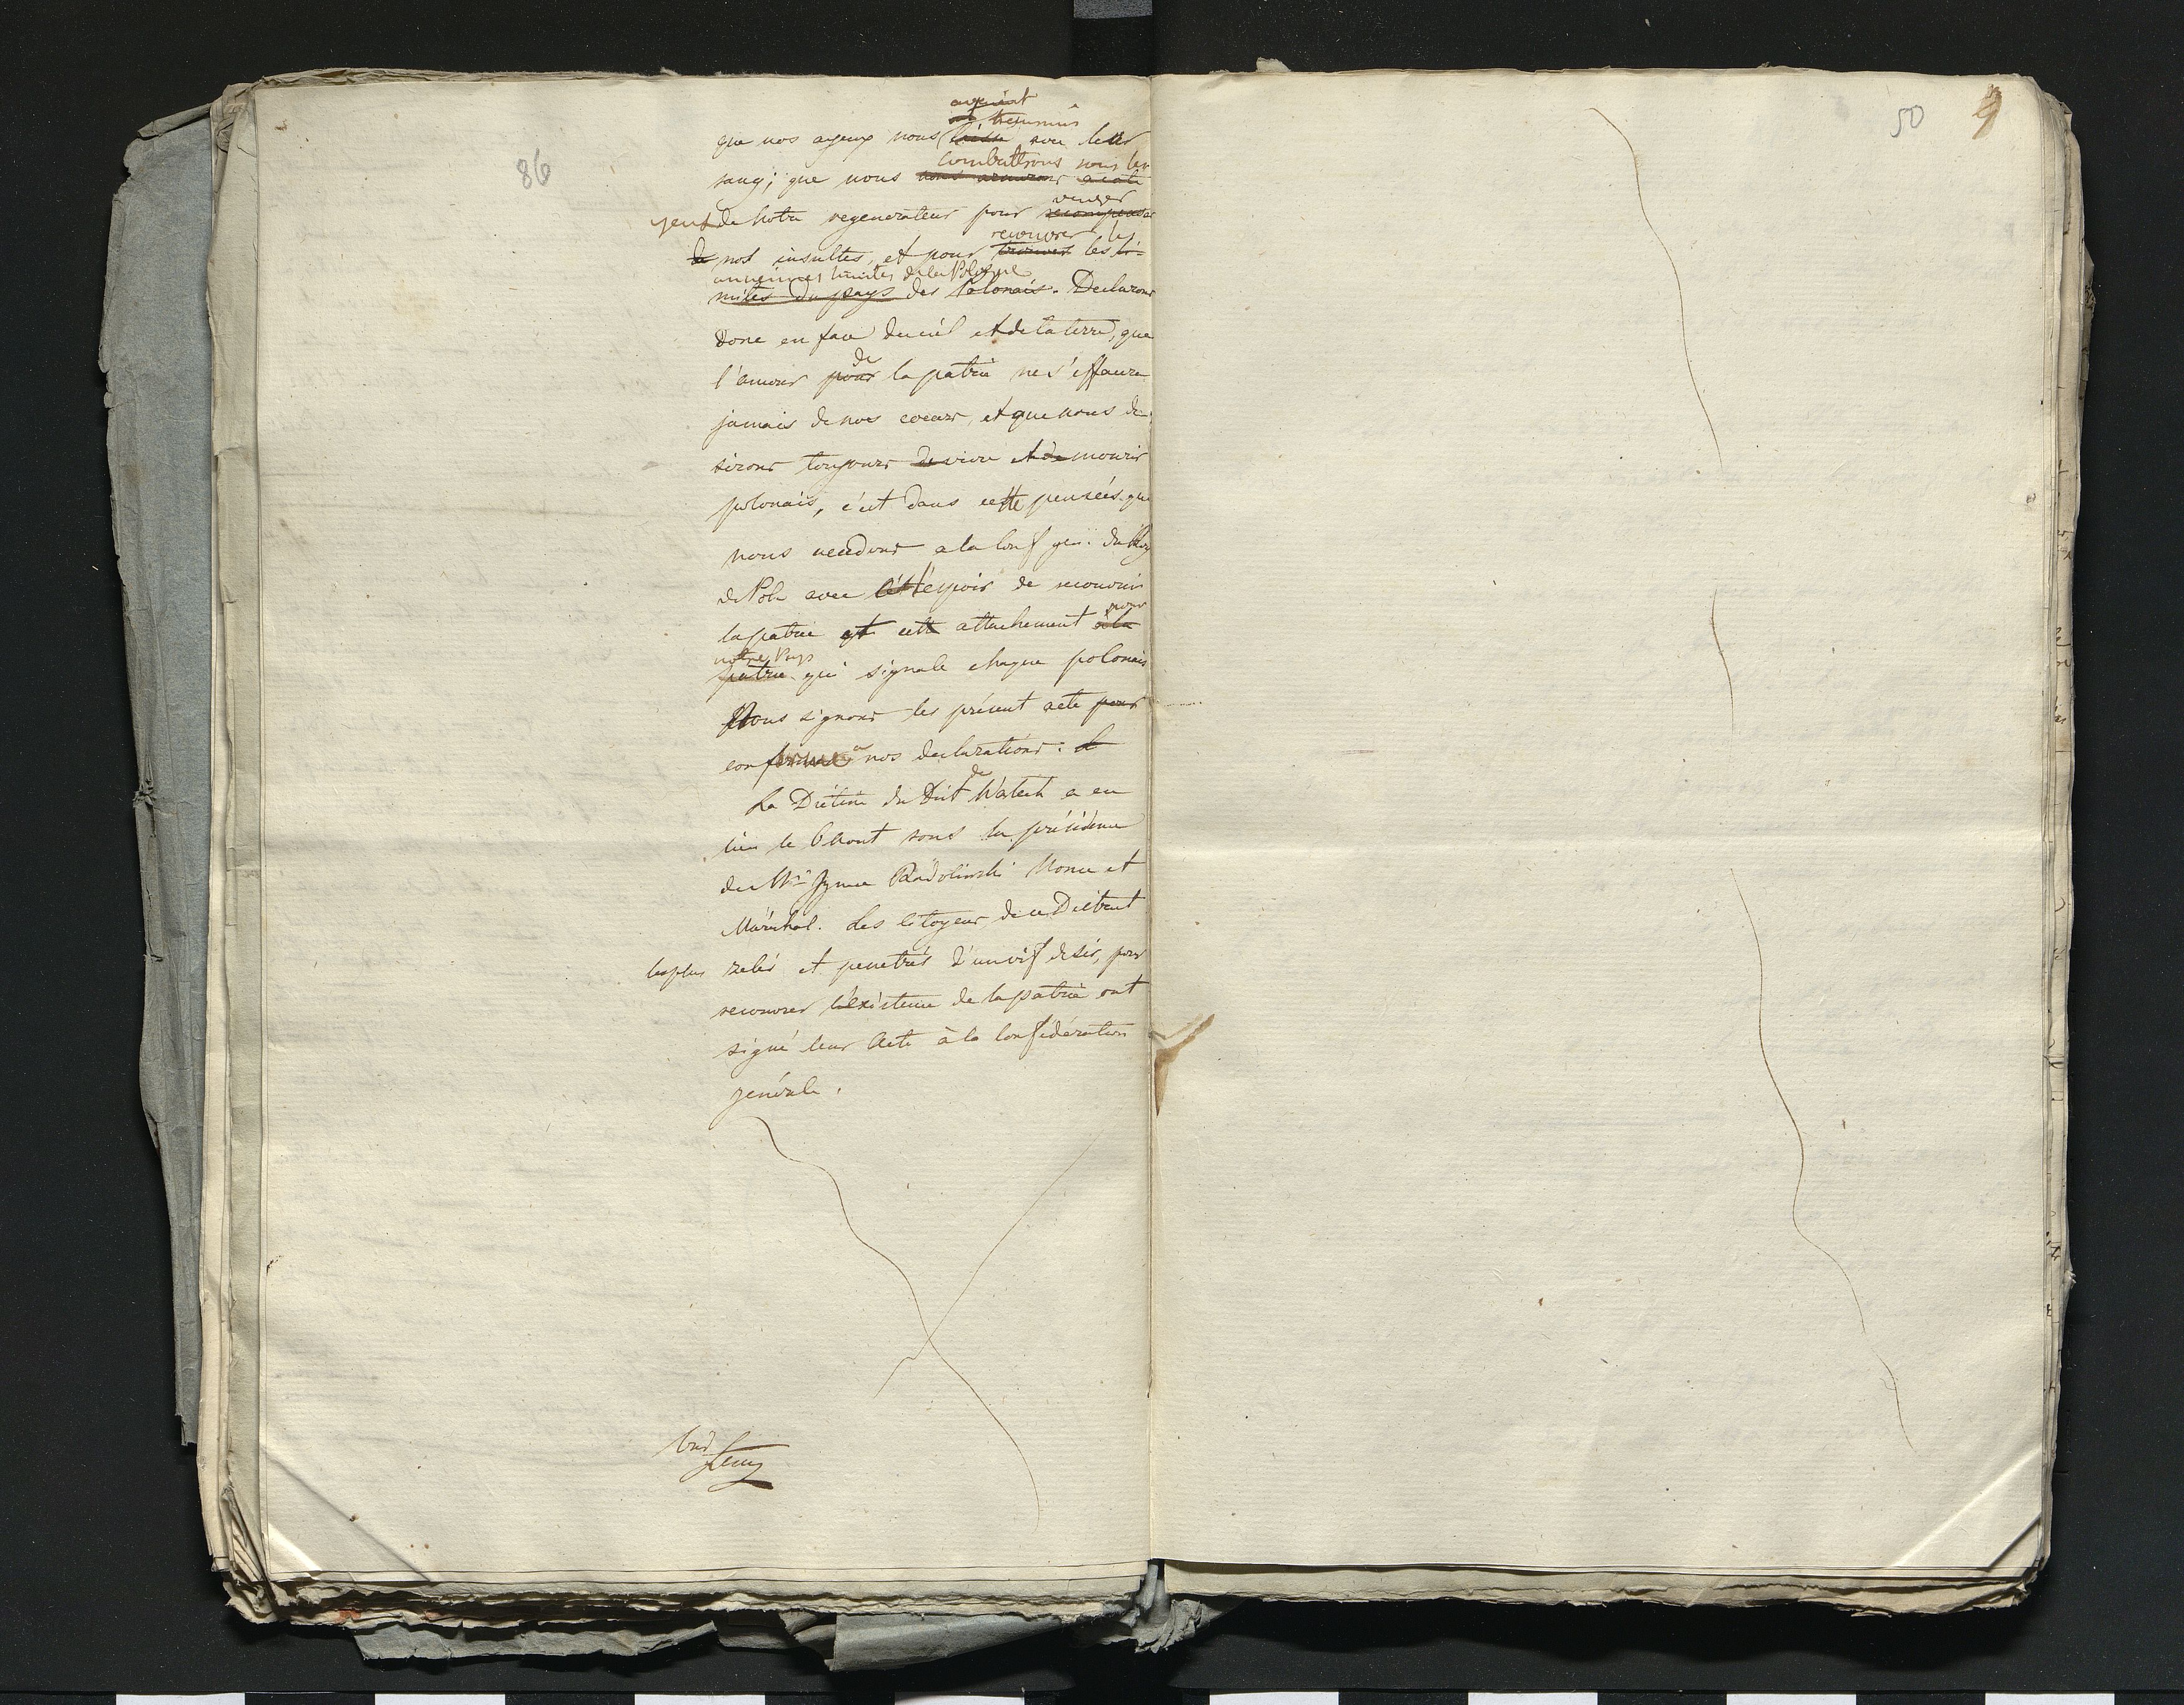 86
acquient
transmis
que nos ayeux nous avec leur
combattrons sous les
sang; que nous nous armerons a coté
venger
yeux de notre regenerateur pour recompenser
recouvrer les
de nos insultes, et pour trouver les li-
anneinnes limites de la Pologne
mites du pays des Polonais. Declarons
donc en face du ciel et de la terre, que
de
l'amour pour la patrie ne s'effacera
jamais de nos coeurs, et que nous de-
sirons toujours de vivre et de mourir
polonais, c'est dans cette pensées que
nous accedons a la Conf gen: du Roy
de Pole avec l'éspoir de recouvrir
pour
la patrie et cette attachement à la
notre Pays
patrie qui signale chaque polonais
Nous signons les présent acte pour
conforme a nos declarations: L
de
La Diétine du Dist Warteck a eu
lieu le 6 Aout sous la présidence
de Mr Radolinski Nonce et
Maréchal. Les Citoyens de ce District
les plus zelés et penetrés d'un vif desir, pour
recouvrer l'éxistence de la patrie ont
signé leur Acte à la Confédération
générale.
50
9